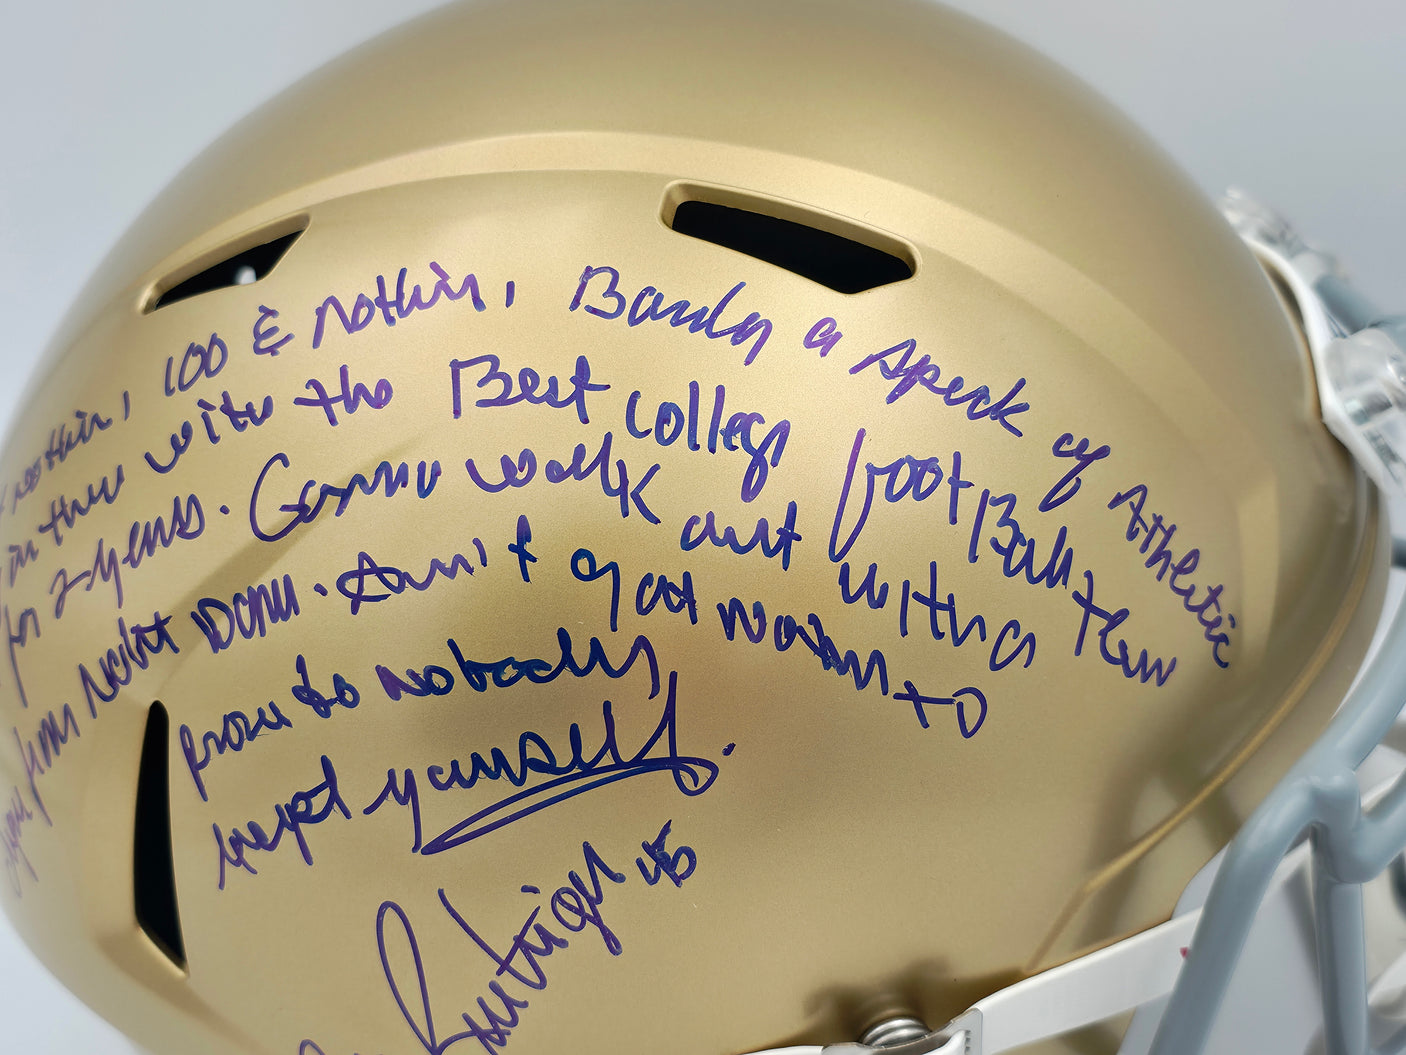 nothin, 100 & nothin, Barely a speck of Athletic
in there with the Best college football team
for 2 years. Gonna walk out with a
from Notre Dame. Ain't gotta nothin to
prove to nobody
except yourself.
Ruettiger 45